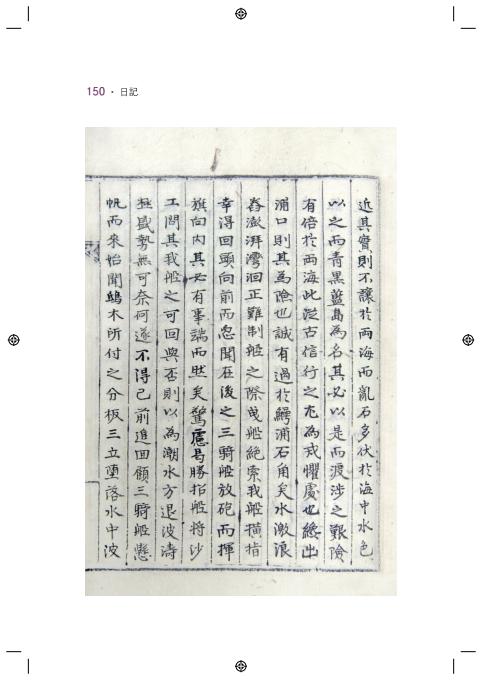 150 • 日記
近其實則不讓於兩海而亂石多伏於海中水色
以之而靑黑藍島爲名其必以是而渡涉之艱險
有倍於兩海此從古信行之尤爲戒懼處也纔出
浦口則其爲險也誠有過於鰐浦石角矣水激浪
春澎湃灣洄正難制船之際曳船絶索我船橫指
幸得回頭向前而忽聞在後之三騎船放砲而揮
旗向內其必有事端而然矣驚慮曷勝招船將沙
工問其我船之可回與否則以爲潮水方退波濤
極盛勢無可奈何遂不得已前進回顧三騎船懸
帆而來始聞鴟木所付之分板三立墮落水中波